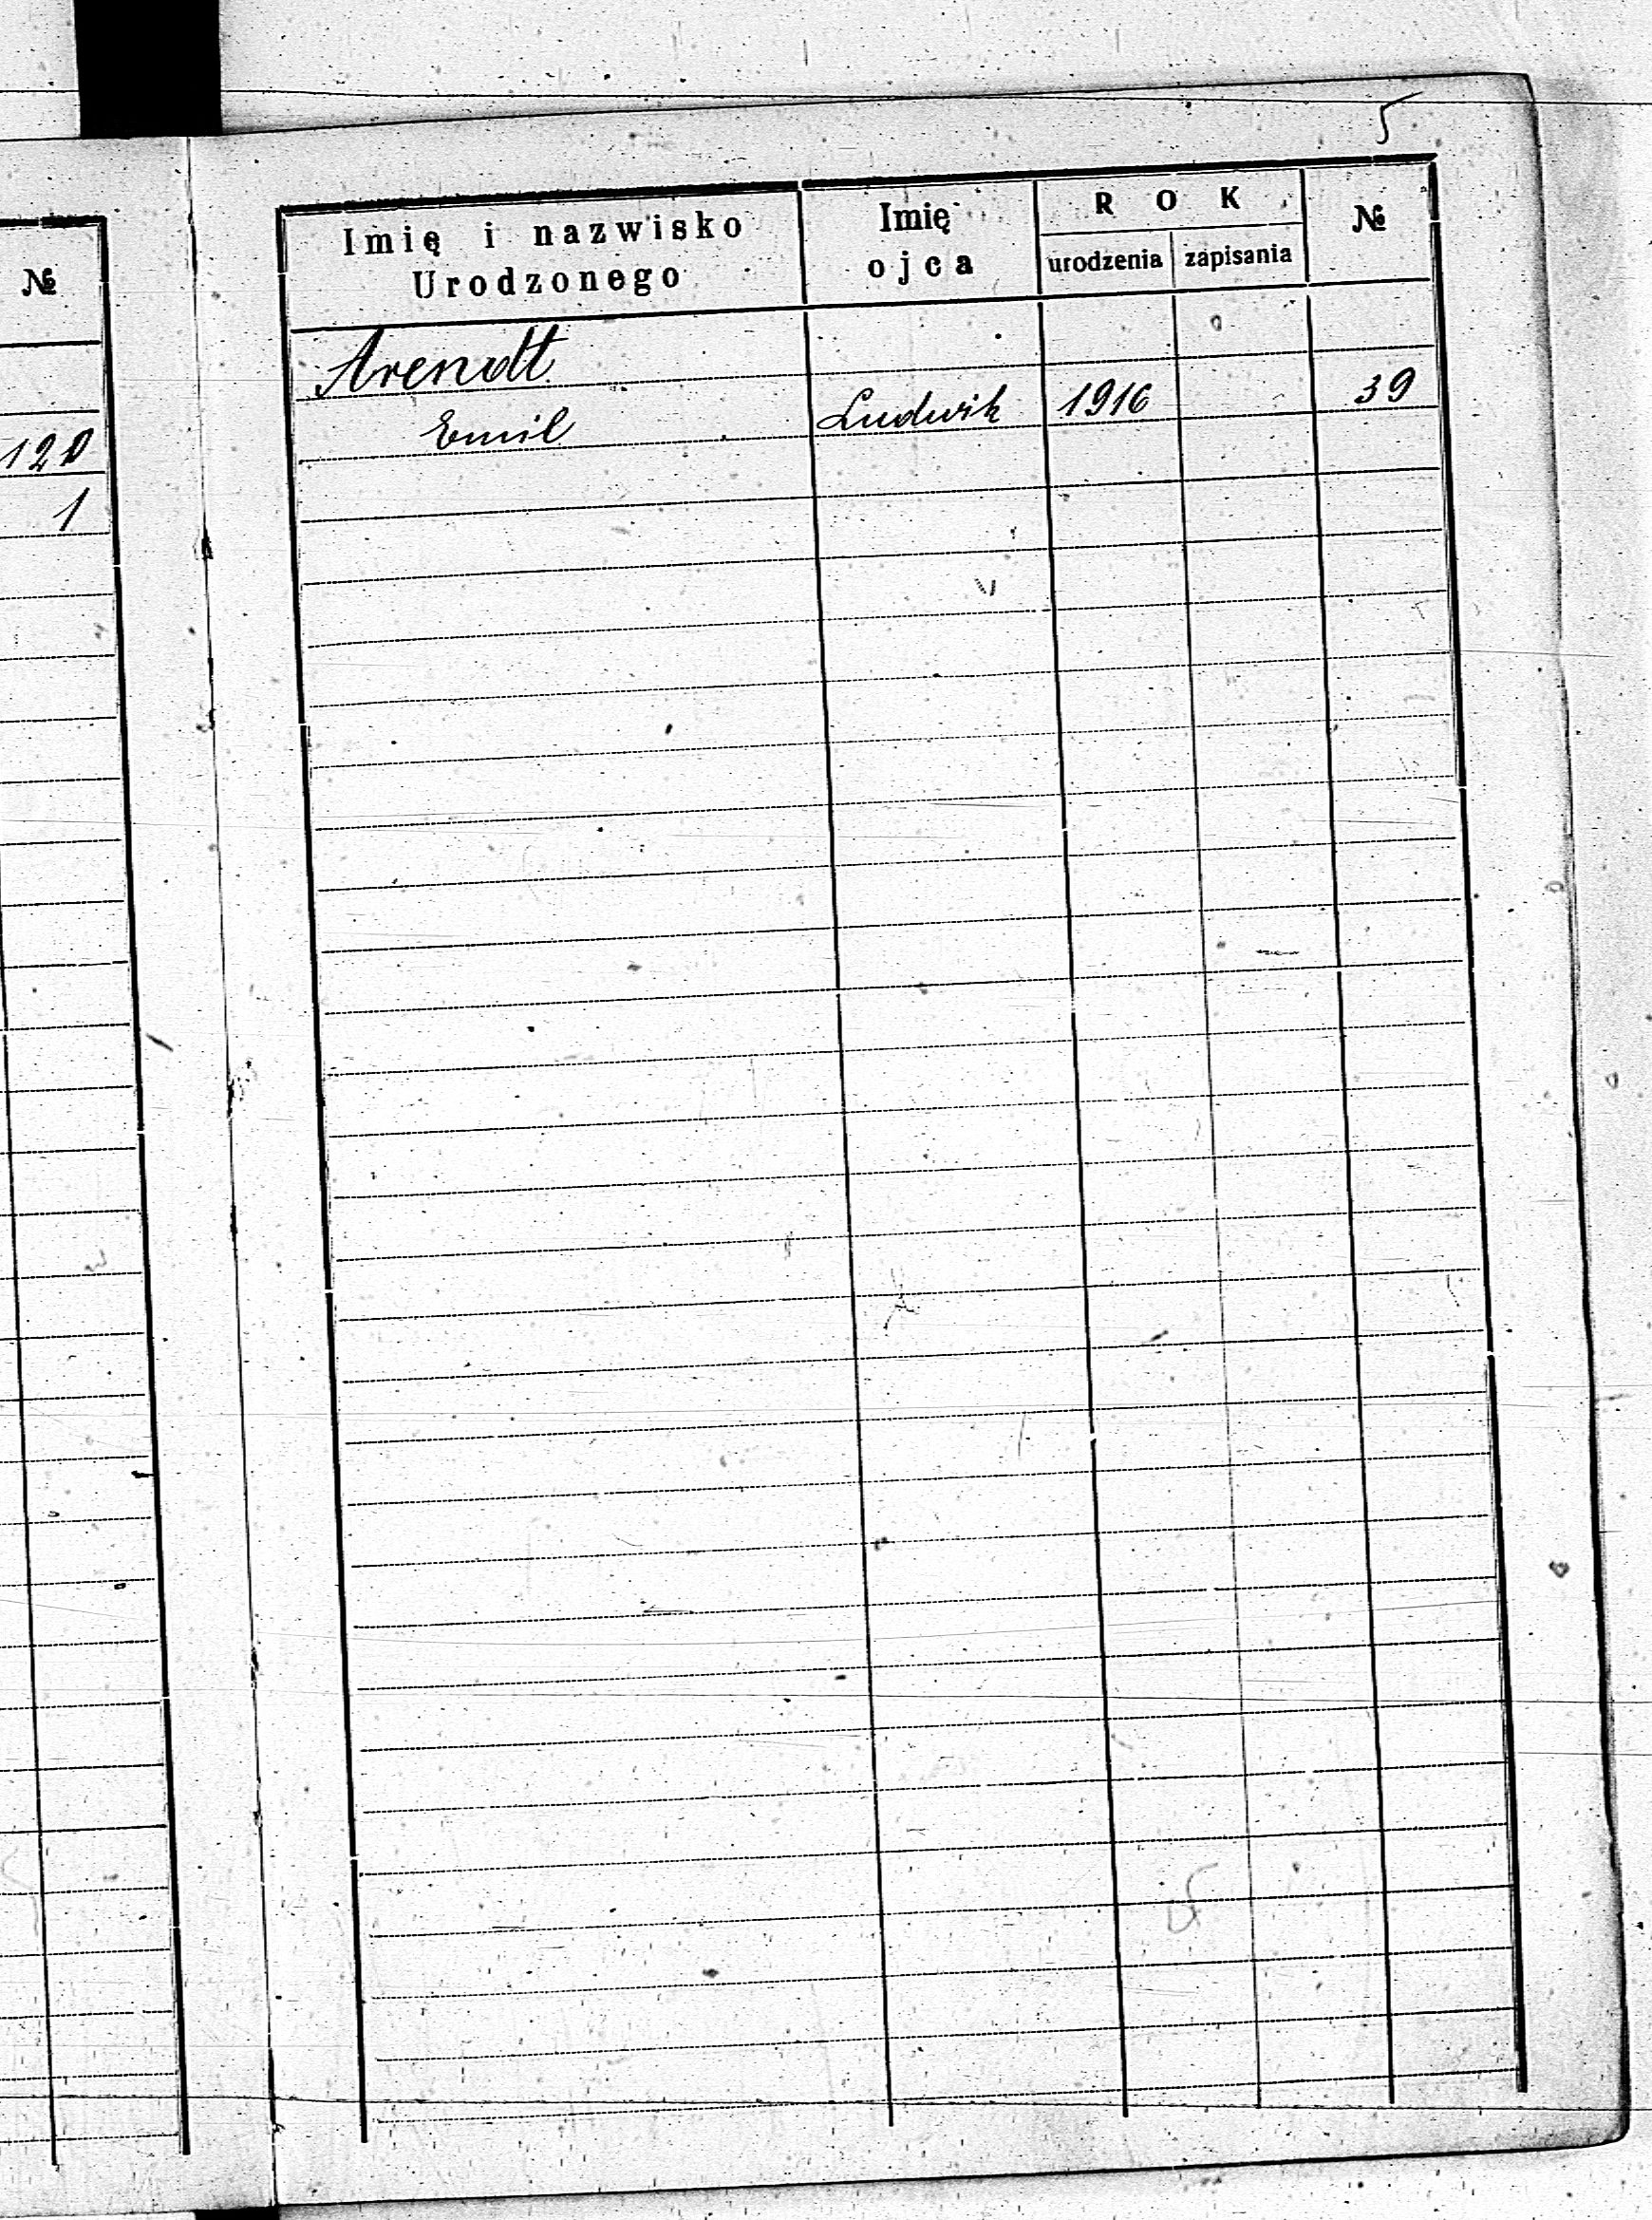 №
120
1
5
Imię i nazwisko
Urodzonego
Imię
ojca
ROK
urodzenia
zapisania
№
Arendt
Emil Ludwik 1916 39